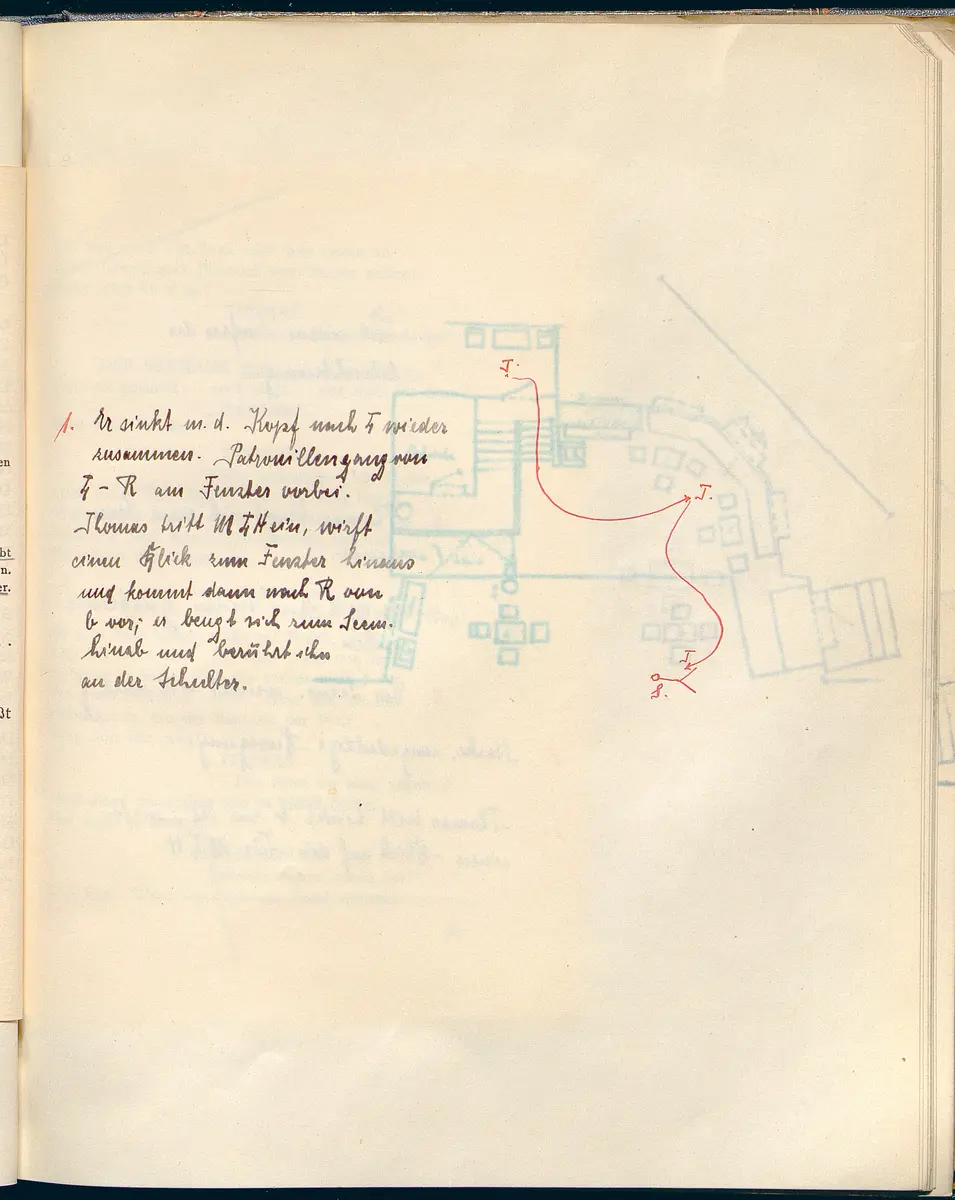 1. Er sinkt m. d. Kopf nach L wieder
zusammen. Patrouillengang von
L - R am Fenster vorbei.
Thomas tritt M L H ein, wirft
einen Blick zum Fenster hinaus
und kommt dann nach R von
b vor; er beugt sich zum Seem.
hinab und berührt ihn
an der Schulter.
T.
T.
T.
S.
en
bt
n.
er.
ßt